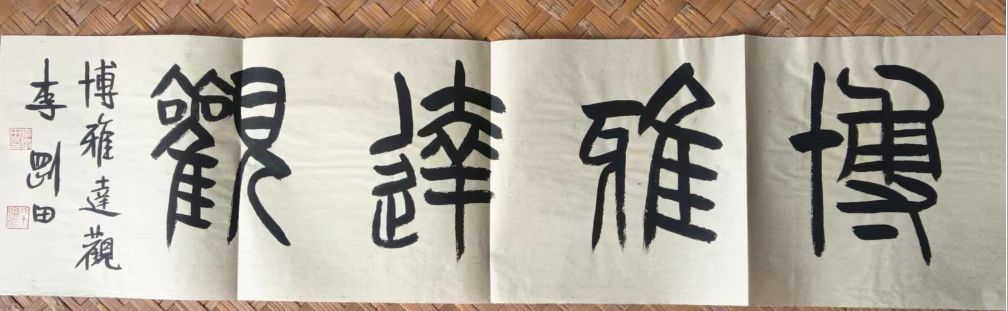 博雅達觀
博雅達觀
李剛田